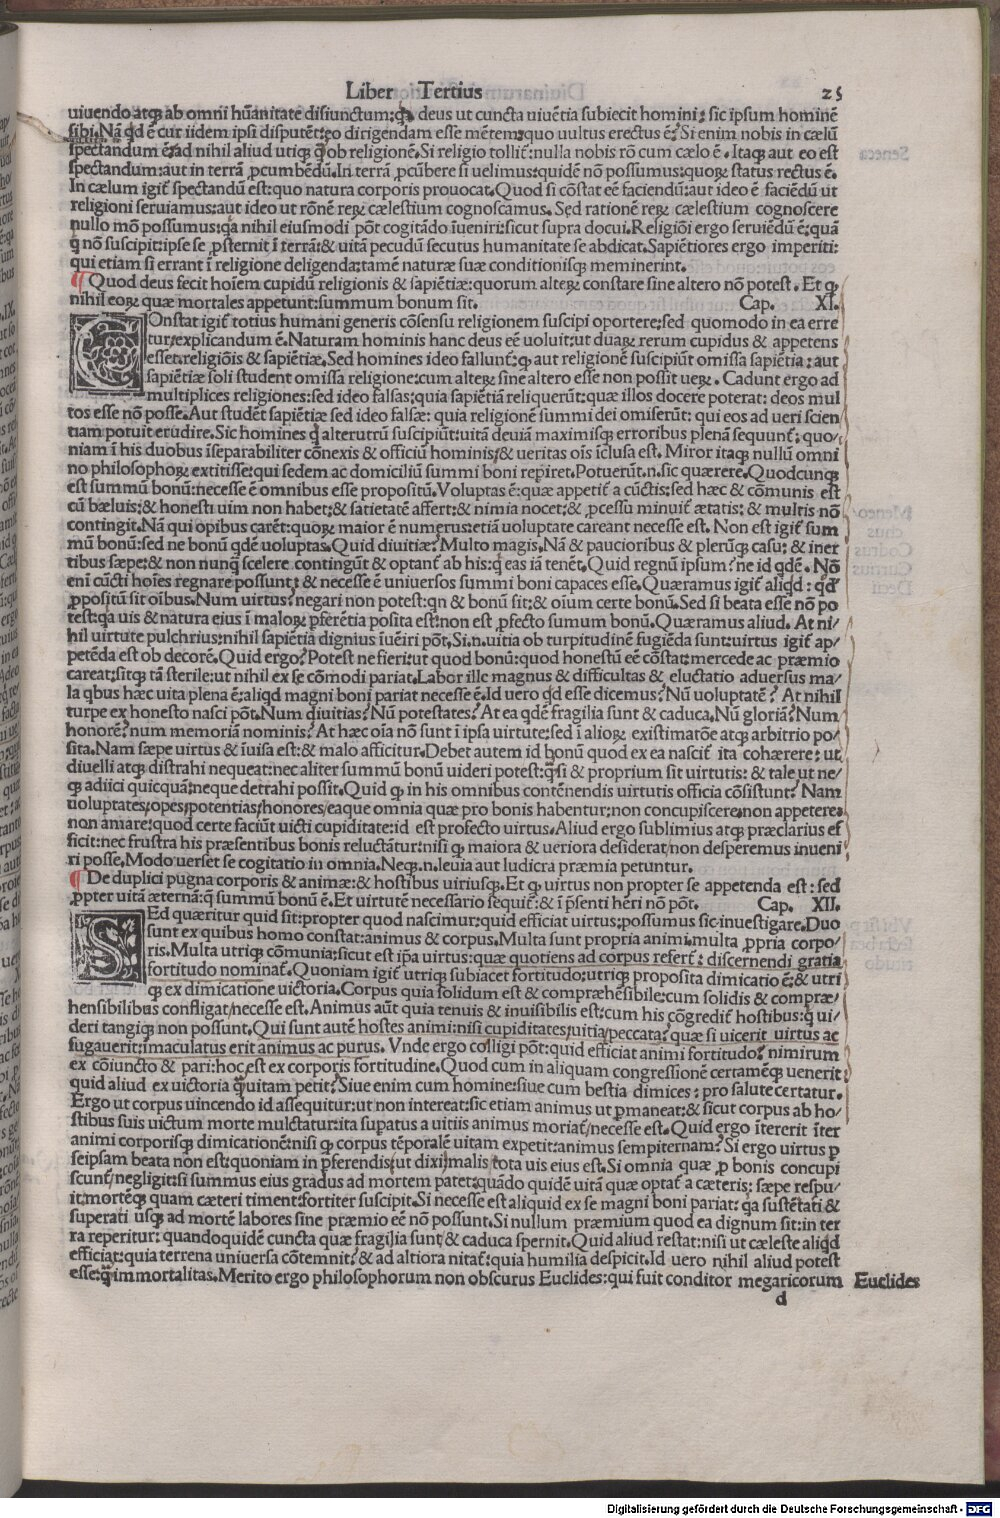 Liber Tertius 25
uiuendo atqꝫ ab omni hūanitate disiunctum:qa deus ut cuncta uiuētia subiecit homini: sic ipsum hominē
sibi.Nā qd ē cur iidem ipsi disputēt:eo dirigendam esse mētem:quo uultus erectus ē?Si enim nobis in cælū
spectandum ē:ad nihil aliud utiqꝫ q̄ ob religionē.Si religio tollit̄:nulla nobis rō cum cælo ē.Itaqꝫ aut eo est
spectandum:aut in terrā ꝓcumbēdū.In terrā ꝓcūbere si uelimus:quidē nō possumus:quoꝝ status rectus ē.
In cælum igit̄ spectandū est:quo natura corporis prouocat.Quod si cōstat eē faciendū:aut ideo ē faciēdū ut
religioni seruiamus:aut ideo ut rōnē reꝝ cælestium cognoscamus.Sed rationē reꝝ cælestium cognoscere
nullo mō possumus:qa nihil eiusmodi pōt cogitādo īueniri:sicut supra docui.Religiōi ergo seruiēdū ē:quā
q̄ nō suscipit:ipse se ꝓsternit ī terrā:& uitā pecudū secutus humanitate se abdicat.Sapiētiores ergo imperiti:
qui etiam si errant ī religione deligenda:tamē naturæ suæ conditionisqꝫ meminerint.
¶ Quod deus fecit hoīem cupidū religionis & sapiētiæ:quorum alteꝝ constare sine altero nō potest. Et qꝫ
nihil eoꝝ quæ mortales appetunt:summum bonum sit. Cap. XI.
COnstat igit̄ totius humani generis cōsensu religionem suscipi oportere:sed quomodo in ea erre
tur:explicandum ē.Naturam hominis hanc deus eē uoluit:ut duaꝝ rerum cupidus & appetens
esset:religiōis & sapiētiæ.Sed homines ideo fallunt̄:qꝫ aut religionē suscipiūt omissa sapiētia: aut
sapiētiæ soli student omissa religione:cum alteꝝ sine altero esse non possit ueꝝ. Cadunt ergo ad
multiplices religiones:sed ideo falsas:quia sapiētiā reliquerūt:quæ illos docere poterat: deos mul
tos esse nō posse.Aut studēt sapiētiæ sed ideo falsæ: quia religionē summi dei omiserūt: qui eos ad ueri scien
tiam potuit erudire.Sic homines q̄ alterutrū suscipiūt:uitā deuiā maximisqꝫ erroribus plenā sequunt̄: quo/
niam ī his duobus īseparabiliter cōnexis & officiū hominis/& ueritas oīs īclusa est. Miror itaqꝫ nullū omni
no philosophoꝝ extitisse:qui sedem ac domiciliū summi boni repiret.Potuerūt.n.sic quærere.Quodcunqꝫ
est summū bonū:necesse ē omnibus esse propositū.Voluptas ē:quæ appetit̄ a cūctis:sed hæc & cōmunis est
cū bæluis:& honesti uim non habet:& satietatē affert:& nimia nocet:& ꝓcessū minuit̄ ætatis: & multis nō
contingit.Nā qui opibus carēt:quoꝝ maior ē numerus:etiā uoluptate careant necesse est. Non est igit̄ sum
mū bonū:sed ne bonū qdē uoluptas.Quid diuitiæ? Multo magis.Nā & paucioribus & plerūqꝫ casu: & iner
tibus sæpe:& non nunq̄ scelere contingūt & optant̄ ab his:q̄ eas iā tenēt.Quid regnū ipsum?ne id qdē. Nō
eni cūcti hoīes regnare possunt: & necesse ē uniuersos summi boni capaces esse.Quæramus igit̄ aliqd : qd
ꝓpositū sit oībus.Num uirtus? negari non potest:qn & bonū sit:& oīum certe bonū.Sed si beata esse nō po
test:qa uis & natura eius ī maloꝝ ꝑferētia posita est:non est ꝓfecto sumum bonū.Quæramus aliud. At ni/
hil uirtute pulchrius:nihil sapiētia dignius īuēiri pōt.Si.n.uitia ob turpitudinē fugiēda sunt:uirtus igit̄ ap/
petēda est ob decorē.Quid ergo?Potest ne fieri:ut quod bonū:quod honestū eē cōstat:mercede ac præmio
careat:sitqꝫ tā sterile:ut nihil ex se cōmodi pariat.Labor ille magnus & difficultas & eluctatio aduersus ma/
la qbus hæc uita plena ē:aliqd magni boni pariat necesse ē.Id uero qd esse dicemus? Nū uoluptatē? At nihil
turpe ex honesto nasci pōt.Num diuitias? Nū potestates? At ea qdē fragilia sunt & caduca.Nū gloriā?Num
honorē? num memoriā nominis? At hæc oīa nō sunt ī ipsa uirtute:sed ī alioꝝ existimatōe atqꝫ arbitrio po/
sita.Nam sæpe uirtus & īuisa est:& malo afficitur.Debet autem id bonū quod ex ea nascit̄ ita cohærere: ut
diuelli atqꝫ distrahi nequeat:nec aliter summū bonū uideri potest:q̄ si & proprium sit uirtutis: & tale ut ne/
qꝫ adiici quicquā:neque detrahi possit.Quid qꝫ in his omnibus contēnendis uirtutis officia cōsistunt? Nam
uoluptates/opes/potentias/honores/eaque omnia quæ pro bonis habentur:non concupiscere:non appetere:
non amare:quod certe faciūt uicti cupiditate:id est profecto uirtus.Aliud ergo sublimius atqꝫ præclarius ef
ficit:nec frustra his præsentibus bonis reluctātur:nisi qꝫ maiora & ueriora desiderat/non desperemus inueni
ri posse.Modo uerset se cogitatio in omnia.Neqꝫ.n.leuia aut ludicra præmia petuntur.
¶ De duplici pugna corporis & animæ:& hostibus uiriusqꝫ.Et qꝫ uirtus non propter se appetenda est : sed
ꝓpter uitā æternā:q̄ summū bonū ē.Et uirtutē necessario sequit̄:& ī p̄senti hēri nō pōt. Cap. XII.
SEd quæritur quid sit:propter quod nascimur:quid efficiat uirtus:possumus sic inuestigare.Duo
sunt ex quibus homo constat:animus & corpus.Multa sunt propria animi.multa ꝓpria corpo/
ris.Multa utriqꝫ cōmunia:sicut est ip̄a uirtus:quæ quotiens ad corpus refert̄ : discernendi gratia
fortitudo nominat̄.Quoniam igit̄ utriqꝫ subiacet fortitudo:utriqꝫ proposita dimicatio ē:& utri
qꝫ ex dimicatione uictoria.Corpus quia solidum est & compræhēsibile:cum solidis & compræ/
hensibilibus confligat/necesse est.Animus aūt quia tenuis & inuisibilis est:cum his cōgredit̄ hostibus:q̄ ui/
deri tangiqꝫ non possunt.Qui sunt autē hostes animi:nisi cupiditates/uitia/peccata? quæ si uicerit uirtus ac
fugauerit:īmaculatus erit animus ac purus. Vnde ergo colligi pōt:quid efficiat animi fortitudo? nimirum
ex cōiuncto & pari:hoc est ex corporis fortitudine.Quod cum in aliquam congressionē certamēqꝫ uenerit:
quid aliud ex uictoria q̄ uitam petit?Siue enim cum homine:siue cum bestia dimices: pro salute certatur.
Ergo ut corpus uincendo id assequitur:ut non intereat:sic etiam animus ut ꝑmaneat:& sicut corpus ab ho/
stibus suis uictum morte mulctatur:ita supatus a uitiis animus moriat̄/necesse est.Quid ergo ītererit īter
animi corporisqꝫ dimicationē:nisi qꝫ corpus tēporalē uitam expetit:animus sempiternam? Si ergo uirtus ꝑ
seipsam beata non est:quoniam in ꝑferendis/ut dixi/malis tota uis eius est.Si omnia quæ ꝓ bonis concupi
scunt̄/negligit:si summus eius gradus ad mortem patet:quādo quidē uitā quæ optat̄ a cæteris: sæpe respu/
it:mortēqꝫ quam cæteri timent:fortiter suscipit.Si necesse est aliquid ex se magni boni pariat: qa sustētati &
superati usqꝫ ad mortē labores sine præmio eē nō possunt.Si nullum præmium quod ea dignum sit:in ter
ra reperitur: quandoquidē cuncta quæ fragilia sunt & caduca spernit.Quid aliud restat:nisi ut cæleste aliqd
efficiat:quia terrena uniuersa cōtemnit: & ad altiora nitat̄:quia humilia despicit.Id uero nihil aliud potest
esse:q̄ immortalitas.Merito ergo philosophorum non obscurus Euclides:qui fuit conditor megaricorum Euclides
d
Digitalisierung gefördert durch die Deutsche Forschungsgemeinschaft - DFG